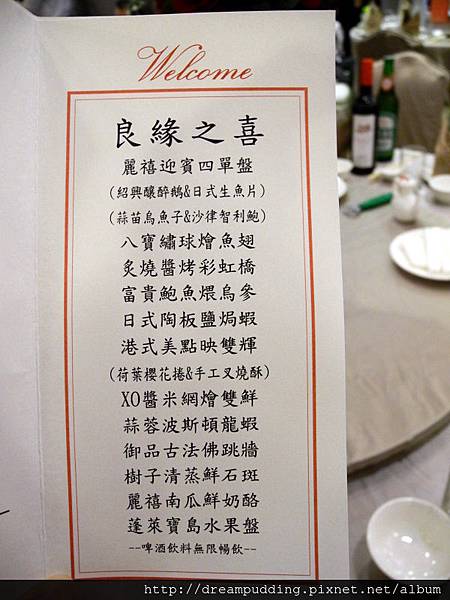 Welcome
良緣之喜
麗禧迎賓四單盤
(紹興釀醉鵝&日式生魚片)
(蒜苗烏魚子&沙律智利鮑)
八寶繡球燴魚翅
炙燒醬烤彩虹橋
富貴鮑魚煨烏參
日式陶板鹽焗蝦
港式美點映雙輝
(荷葉櫻花捲&手工叉燒酥)
XO醬米網燴雙鮮
蒜蓉波斯頓龍蝦
御品古法佛跳牆
樹子清蒸鮮石斑
麗禧南瓜鮮奶酪
蓬萊寶島水果盤
--啤酒飲料無限暢飲--
http://dreampudding.pixnet.net/album